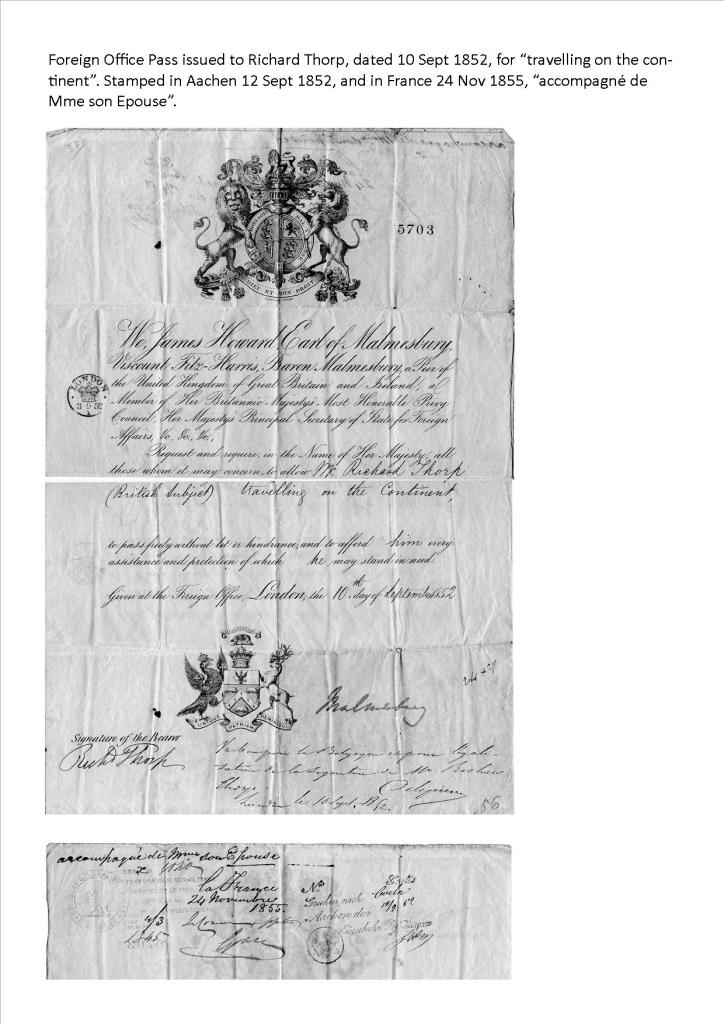 Foreign Office Pass issued to Richard Thorp, dated 10 Sept 1852, for “travelling on the con-
tinent”. Stamped in Aachen 12 Sept 1852, and in France 24 Nov 1855, “accompagné de
Mme son Epouse”.
5703
DIEU ET MON DROIT
We, James Howard Earl of Malmesbury,
Viscount Fitz-Harris, Baron Malmesbury, a Peer of
the United Kingdom of Great Britain and Ireland, a
Member of Her Britannic Majestys Most Honorable Privy
LONDON
Council, Her Majestys Principal Secretary of State for Foreign
Affairs, &c. &c. &c.,
Request and require, in the Name of Her Majesty, all
those whom it may concern, to allow Mr. Richard Thorp
(British Subject) travelling on the Continent,
to pass freely without let or hindrance, and to afford him every
assistance and protection of which he may stand in need.
Given at the Foreign Office, London, the 10th day of September 1852
Malmesbury
UBIQUE PATRIAM REMINISCI
Signature of the Bearer
Richd Thorp
56
accompagné de Mme son Epouse
La France
24 Novembre
1855.
No
Gesehen nach
Aachen den